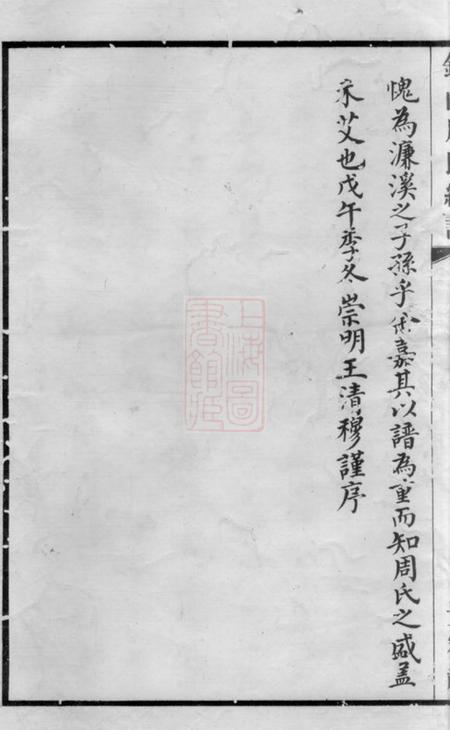 愧為濂溪之子孫乎余嘉其以譜為重而知周氏之盛蓋
未艾也戊午季冬崇明王清穆謹序
上海圖
書館藏